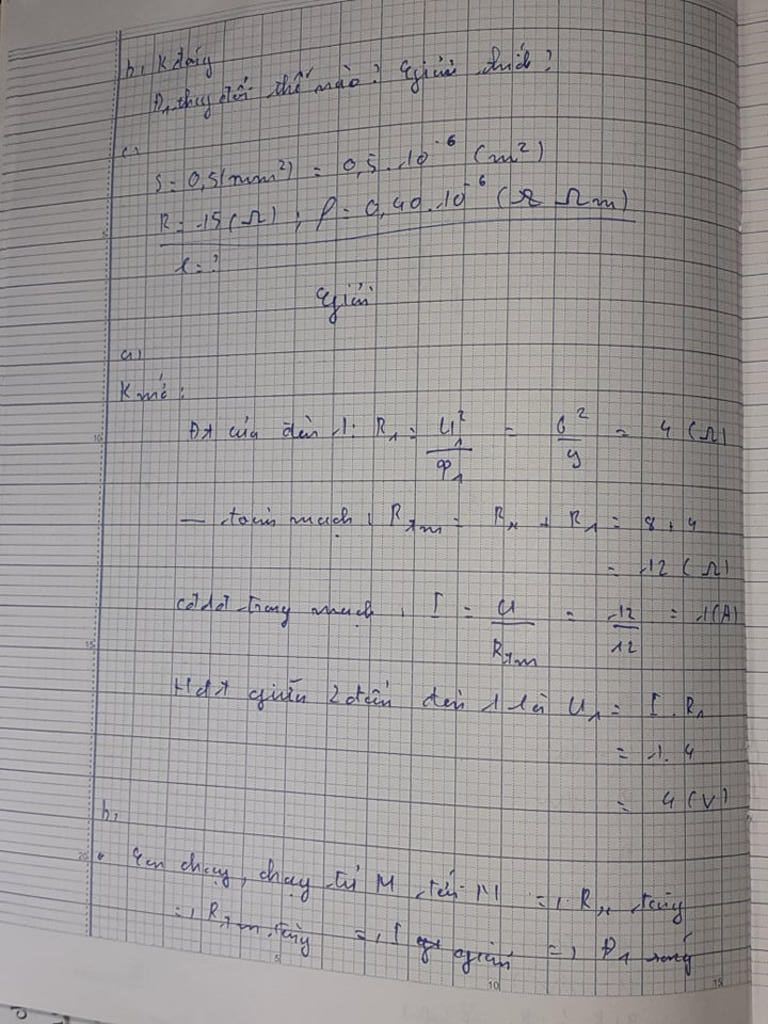 b, K đóng
Đ1 thay đổi thế nào? Giải thích?
c,
S = 0,5(mm²) = 0,5.10⁻⁶ (m²)
R = 15(Ω) ; ρ = 0,40.10⁻⁶ (Ωm)
l = ?
Giải
a,
K mở:
Đt của đèn 1: R₁ = U₁²/P₁ = 6²/9 = 4 (Ω)
— toàn mạch: Rtm = Rx + R₁ = 8 + 4
= 12 (Ω)
cđdđ trong mạch: I = U/Rtm = 12/12 = 1(A)
Hđt giữa 2 đầu đèn 1 là U₁ = I . R₁
= 1. 4
= 4 (V)
b,
chạy, chạy từ M tới N => Rx tăng
=> Rtm tăng => I giảm => Đ1 sáng